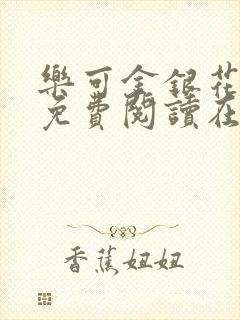 樂可金銀花
免費閱讀在
香蕉妞妞